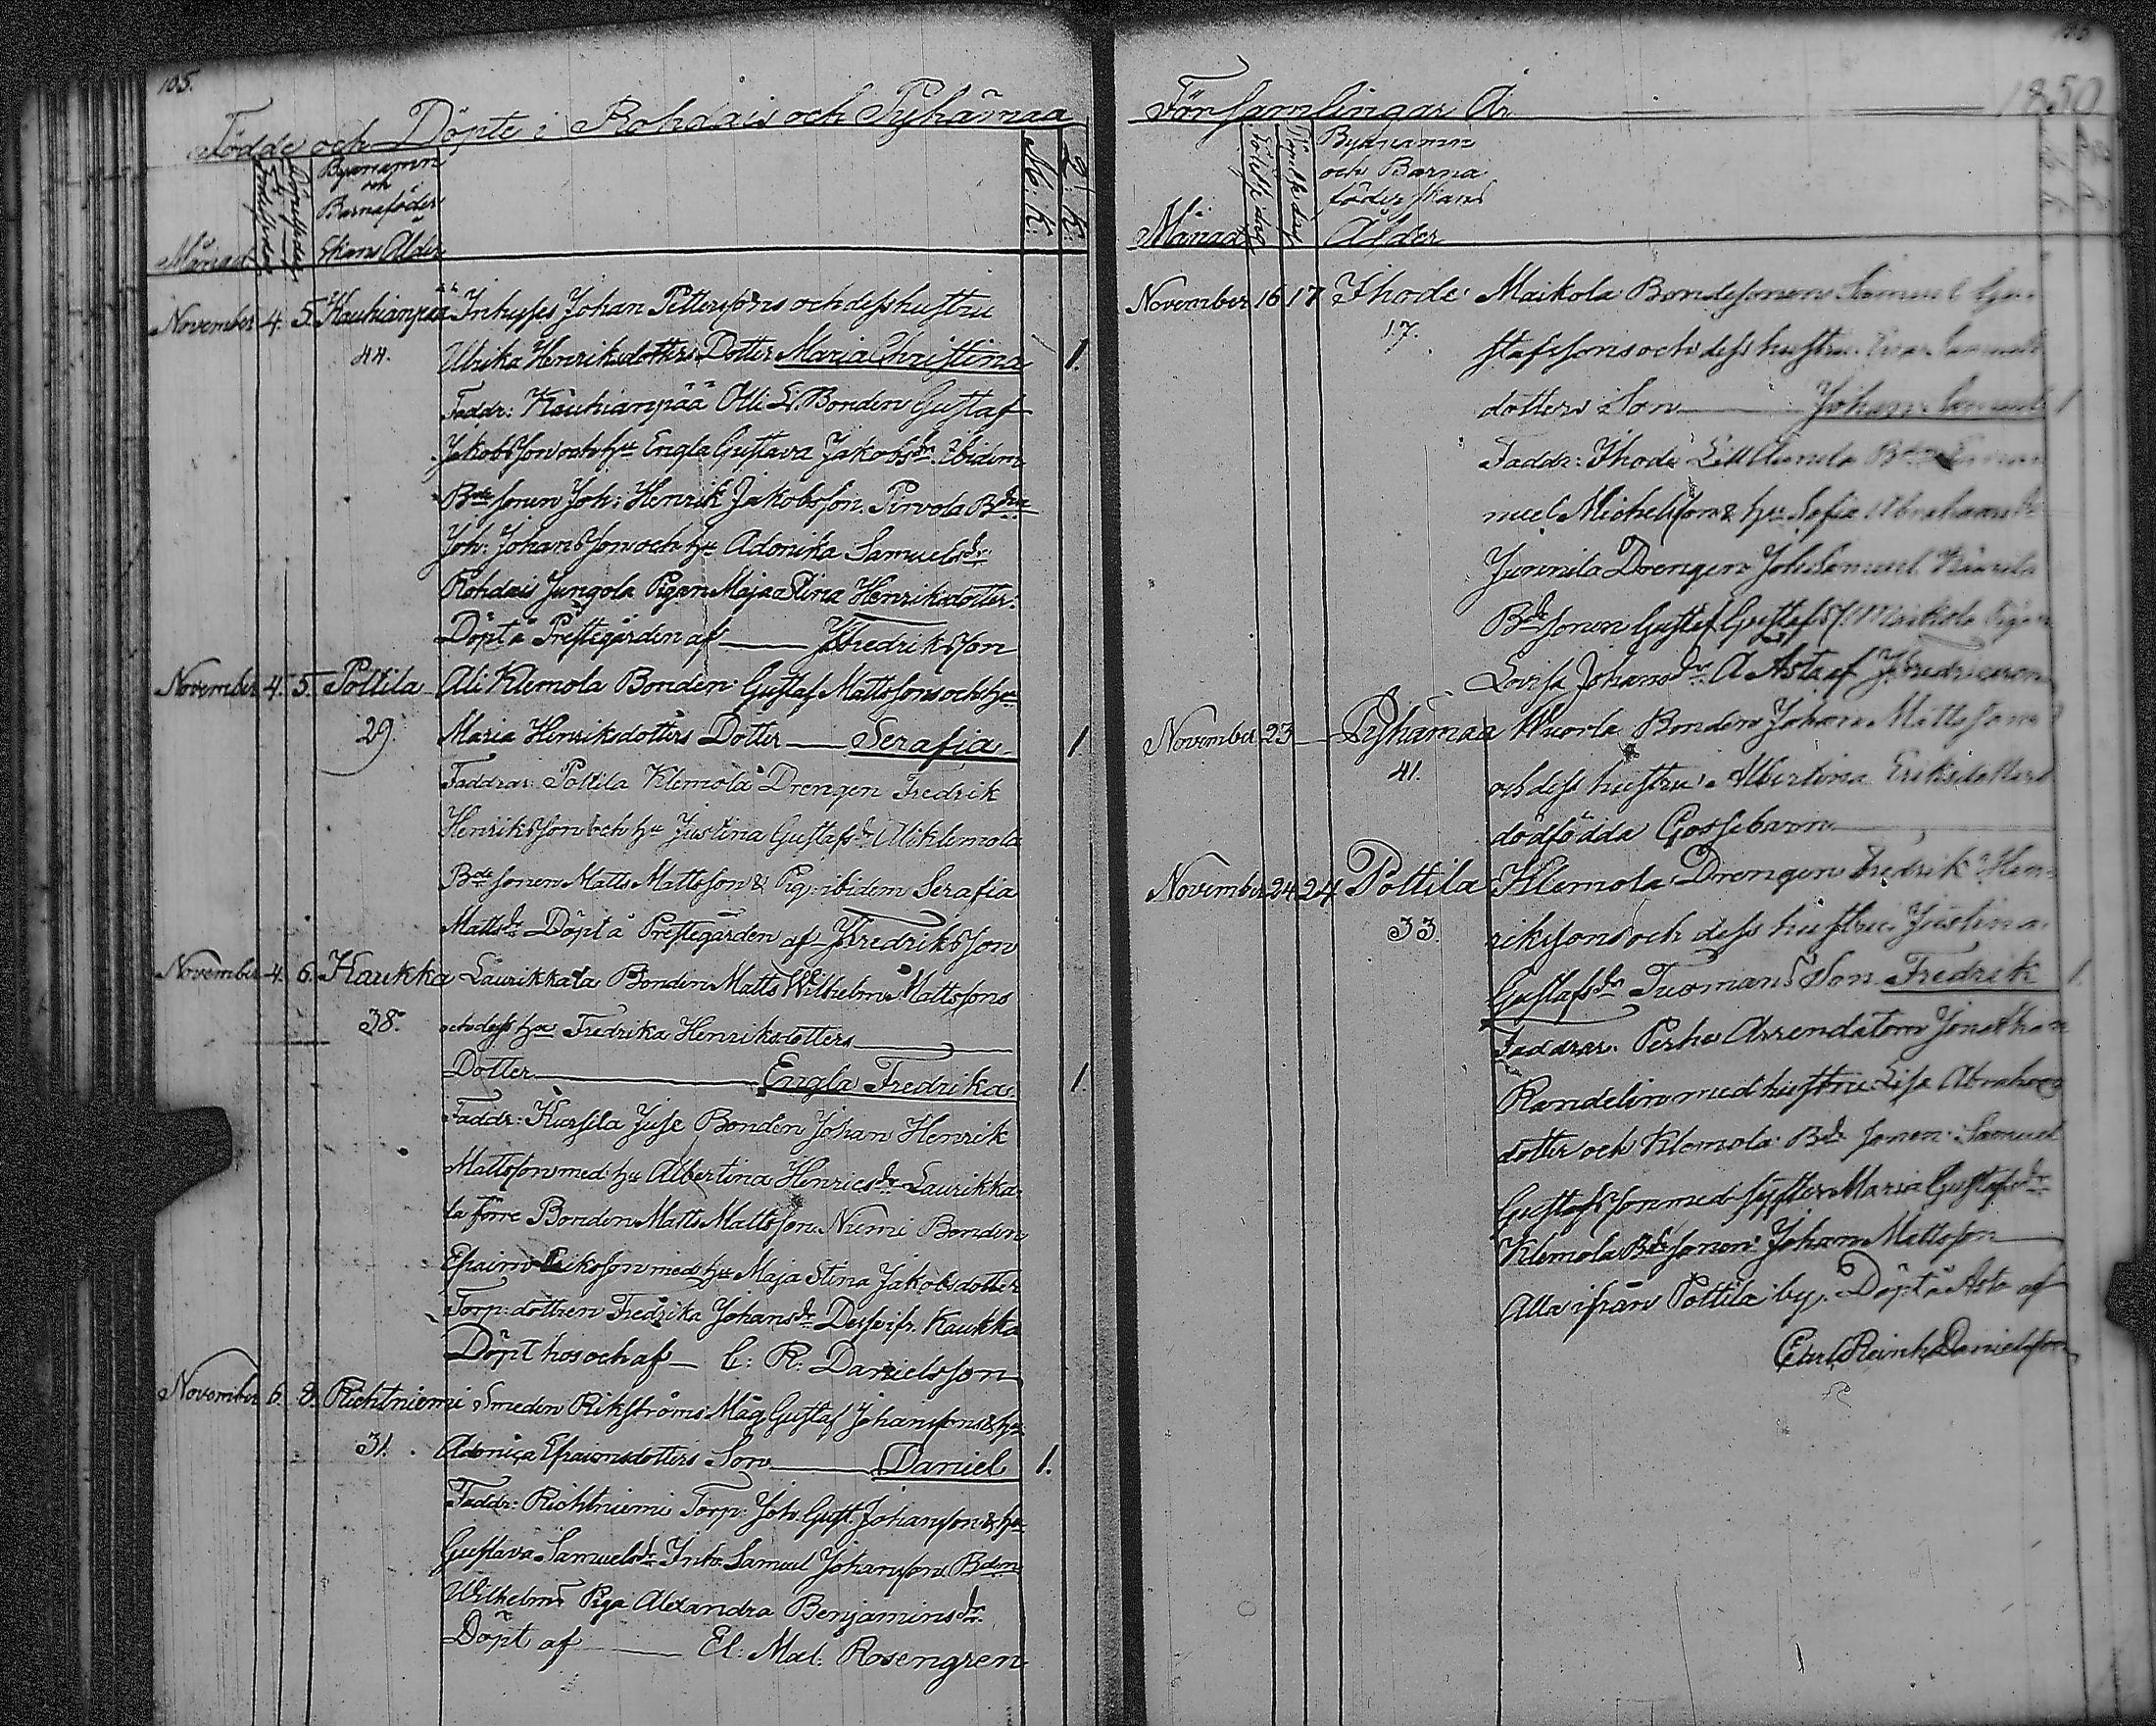 105.
Födde och Döpte i Rohdais och Pyhämaa
Månad
Födelsedag
Döpelsedag
Byanamn
och
Barnaföder
skans Ålder
M. K.
Q. K.
November 4. 5. Kauhianpää Inhyses Johan Pettersons och dess hustru
44. Ulrika Henriksdotters Dotter Maria Christina 1.
Faddr: Kauhianpää Olli Bonden Gustaf
Jakobsson och hu Engla Gustava Jakobsdr. Ibidem
Bdesonen Joh: Henrik Jakobsson. Pirvola Bden
Joh: Johansson och hu Adonika Samuelsdr.
Rohdais Jungola Pigan Maja Stina Henriksdotter.
Döpt å Prestegården af — Fredriksson
November 4. 5. Pottila Ali Klemola Bonden Gustaf Mattssons och hu
29. Maria Henriksdotters Dotter — Serafia 1
Faddrar: Pottila Klemola Drengen Fredrik
Henriksson och hu Justina Gustafsdr. Aliklemola
Bdesonen Matts Mattsson & Pig: ibidem Serafia
Mattsdr. Döpt å Prestegården af Fredriksson
November 4. 6. Kaukka Laurikkala Bonden Matts Wilhelm Mattssons
38. och dess hu Fredrika Henriksdotters
Dotter — Engla Fredrika. 1.
Faddr: Juse Bonden Johan Henrik
Mattsson med hu Albertina Henricsdr. Laurikka
la förre Bonden Matts Mattsson. Niemi Bonden
Efraim Eriksson med hu Maja Stina Jakobsdotter
Torp: dottren Fredrika Johansdr. Kaukka
Döpt hos och af — C: R: Danielsson
November 6. 8. Richtniemi Smeden Rikströms Måg Gustaf Johanssons & hu
31. Adonica Efraimsdotters Son — Daniel 1.
Faddr: Richtniemi Torp: Joh. Gust. Johansson & hu
Gustava Samuelsdr. Inh. Samuel Johansson Bden
Wilhelms Piga Alexandra Benjaminsdr.
Döpt af — El: Mal. Rosengren
Församlingar År — 1850
Månad
Födelse dag
Döpelse dag
Byanamn
och Barna
föderskans
Ålder
November 16 17 Ihode Maikola Bondesonen Samuel Gu
17. stafssons och dess hustru Samuels
dotters Son — Johan Samuel 1
Faddr: Ihode
nuel Michelsson & hu Sofia Abrahamsdr
Junnila Drengen Joh Samuel
Bdesonen Gustaf Gustafss. Maikola Pigan
Lovisa Johansdr. Å Asta af Fredricson
November 23 — Pyhämaa Wuorla Bonden Johan Mattssons
41. och dess hustrus Albertina Eriksdotters
dödfödda Gossebarn —
November 24 24 Pottila Klemola Drengen Fredrik Hen
33. rikssons och dess hustrus Justina
Gustafsdr. Tuomans Son Fredrik 1.
Faddrar. Perho Arrendatorn Jonathan
Randelin med hustru Lisa Abrahams
dotter och Klemola Bdesonen Samuel
Gustafsson med syster Maria Gustafsdr.
Klemola Bdesonen Johan Mattsson —
Alla ifrån Pottila by. Döpt å Asta af
Carl Reinh Danielsson